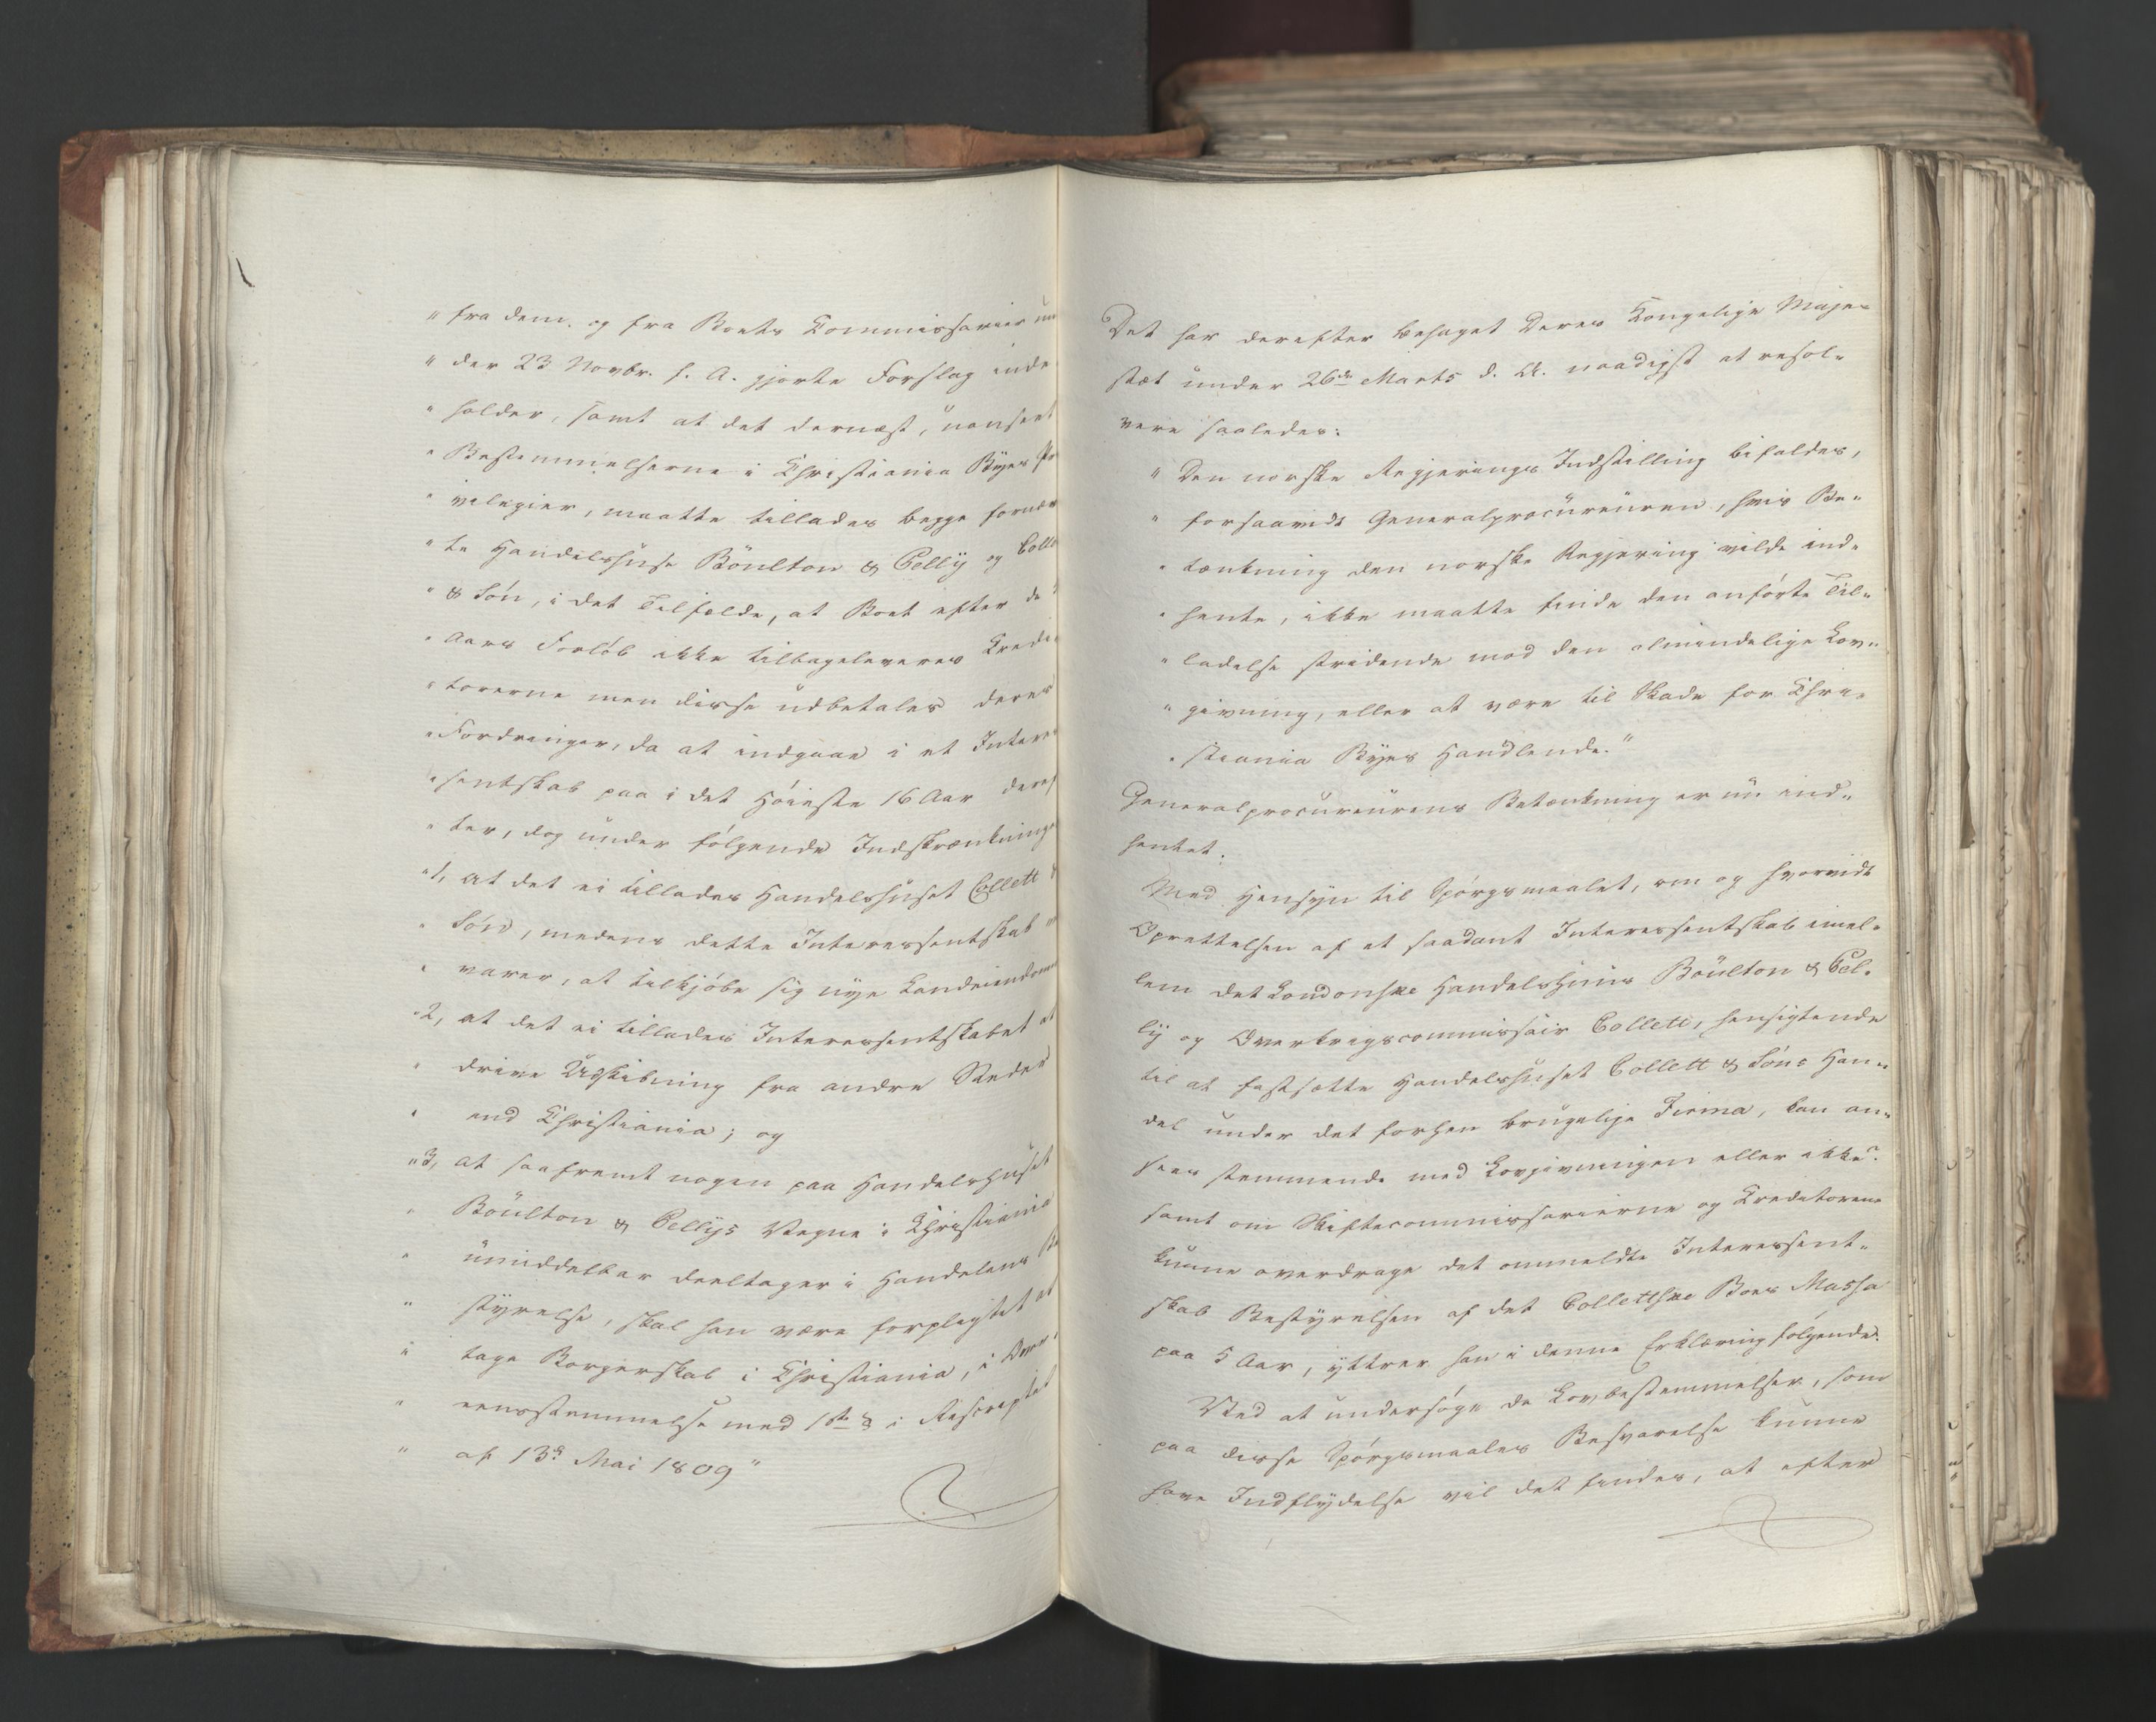 " fra dem, og fra Boets Commissarier un
" der 23 Novbr. f. A. gjorte Forslag inde
" holder, samt at det dernæst, uanseet
" Bestemmelserne i Christiania Byes Pr
" ivilegier, maatte tillades begge fornæv
" te Handelshuse Böulton & Pelly og Colle
" & Sön, i det Tilfælde, at Boet efter de 5
" Aars Forlöb ikke tilbageleveres Credi
" torerne men disse udbetales deres
" Fordringer, da at indgaae i et Interes
" sentskab paa i det Höieste 16 Aar deref
" ter, dog under fölgende Indskrænkninge
" 1, at det ei tillades Handelshuset Collett &
" Sön, medens dette Interessentskab
" varer, at tilkjöbe sig nye Landeiendomm
" 2, at det ei tillades Interessentskabet at
" drive Udskibning fra andre Steder
" end Christiania; og
" 3, at saafremt nogen paa Handelshuset
" Böulton & Pellys Vegne i Christiania
" umiddelbar deeltager i Handelens Be
" styrelse, skal han være forpligtet at
" tage Borgerskab i Christiania, i Over
" eensstemmelse med 1ste § i Rescriptet
" af 13de Mai 1809"
Det har derefter behaget Deres Kongelige Maje-
stæt under 26de Marts d. A. naadigst at resol-
vere saaledes:
" Den norske Regjerings Indstilling bifaldes,
" forsaavidt Generalprocureuren, hvis Be-
" tænkning den norske Regjering vilde ind-
" hente, ikke maatte finde den anförte Til-
" ladelse stridende mod den almindelige Lov-
" givning, eller at være til Skade for Chri-
" stiania Byes Handlende."
Generalprocureurens Betænkning er nu ind-
hentet.
Med Hensyn til Spörgsmaalet, om og hvorvidt
Oprettelsen af et saadant Interessentskab imel-
lem det Londonske Handelshuus Böulton & Pel-
ly og Overkrigscommissair Collett, hensigtende
til at fastsætte Handelshuset Collett & Söns Han-
del under det forhen brugelige Firma, kan an-
sees stemmende med Lovgivningen eller ikke?
samt om Skiftecommissarierne og Creditorerne
kunne overdrage det ommeldte Interessent-
skab Bestyrelsen af det Collettske Boes Massa
paa 5 Aar, yttrer han i denne Erklæring fölgende.
Ved at undersöge de Lovbestemmelser, som
paa disse Spörgsmaales Besvarelse kunne
have Indflydelse vil det findes, at efter